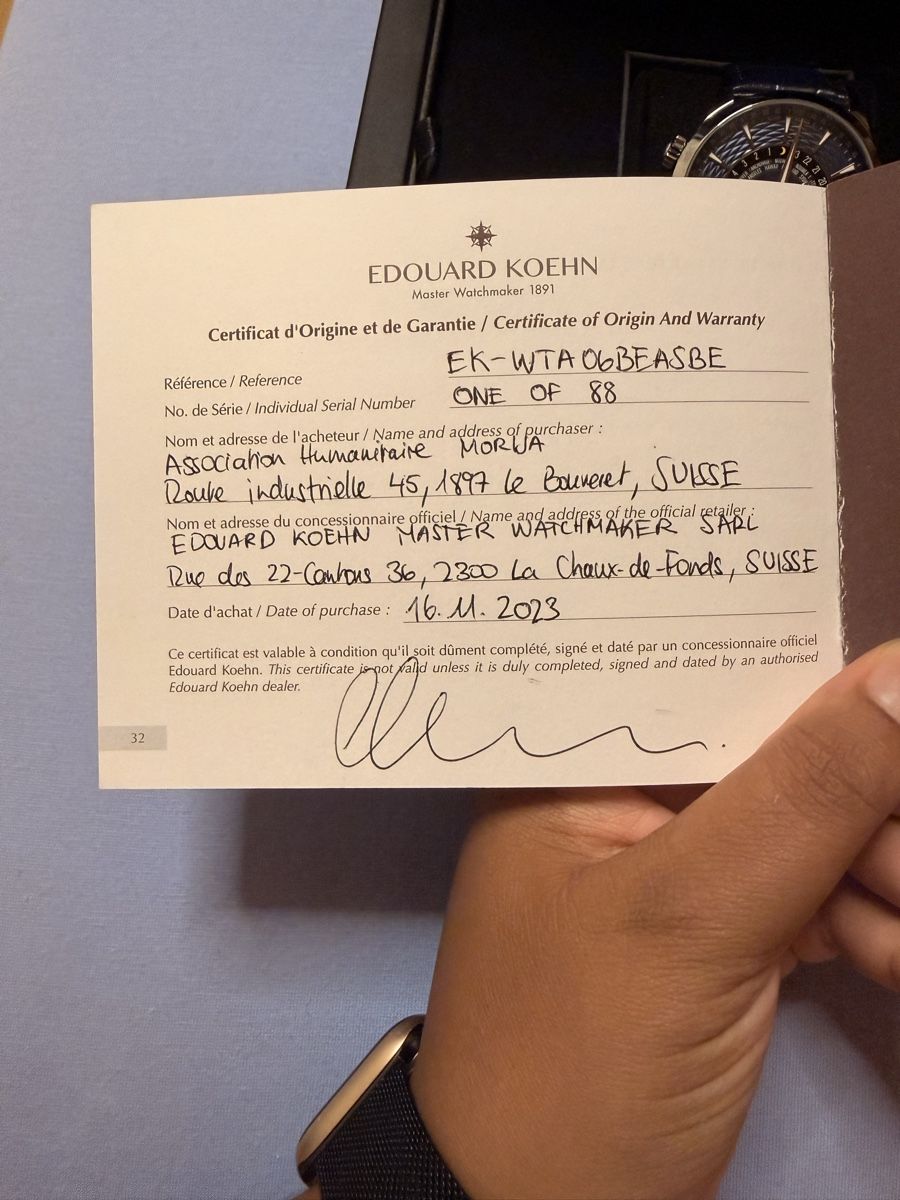 EDOUARD KOEHN
Master Watchmaker 1891
Certificat d'Origine et de Garantie / Certificate of Origin And Warranty
Référence / Reference EK-WTA06BEASBE
No. de Série / Individual Serial Number ONE OF 88
Nom et adresse de l'acheteur / Name and address of purchaser :
Association Humanitaire MORIJA
Route industrielle 45, 1897 Le Bouveret, SUISSE
Nom et adresse du concessionnaire officiel / Name and address of the official retailer :
EDOUARD KOEHN MASTER WATCHMAKER SARL
Rue des 22-Cantons 36, 2300 La Chaux-de-Fonds, SUISSE
Date d'achat / Date of purchase : 16.11.2023
Ce certificat est valable à condition qu'il soit dûment complété, signé et daté par un concessionnaire officiel
Edouard Koehn. This certificate is not valid unless it is duly completed, signed and dated by an authorised
Edouard Koehn dealer.
32